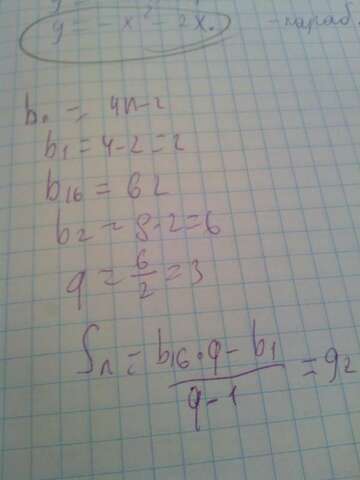 y = -x² - 2x. - параб.
bₙ = 4n-2
b₁ = 4-2=2
b₁₆ = 62
b₂ = 8-2=6
q = 6/2 = 3
Sₙ = (b₁₆·q - b₁)/(q-1) = 92